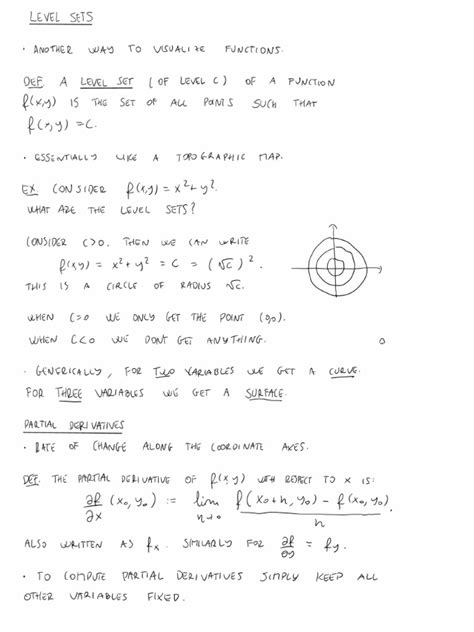 LEVEL SETS
· ANOTHER WAY TO VISUALIZE FUNCTIONS.
DEF. A LEVEL SET (OF LEVEL C) OF A FUNCTION
f(x,y) IS THE SET OF ALL POINTS SUCH THAT
f(x,y) = C.
· ESSENTIALLY LIKE A TOPOGRAPHIC MAP.
EX. CONSIDER f(x,y) = x² + y².
WHAT ARE THE LEVEL SETS?
CONSIDER C>0. THEN WE CAN WRITE
f(x,y) = x² + y² = C = (√C)².
THIS IS A CIRCLE OF RADIUS √C.
WHEN C=0 WE ONLY GET THE POINT (0,0).
WHEN C<0 WE DONT GET ANYTHING.
· GENERICALLY, FOR TWO VARIABLES WE GET A CURVE.
FOR THREE VARIABLES WE GET A SURFACE.
PARTIAL DERIVATIVES
· RATE OF CHANGE ALONG THE COORDINATE AXES.
DEF. THE PARTIAL DERIVATIVE OF f(x,y) WITH RESPECT TO X IS:
∂f/∂x (x₀, y₀) := lim h→0 f(x₀+h, y₀) - f(x₀, y₀) / h.
ALSO WRITTEN AS fx. SIMILARLY FOR ∂f/∂y = fy.
· TO COMPUTE PARTIAL DERIVATIVES SIMPLY KEEP ALL
OTHER VARIABLES FIXED.